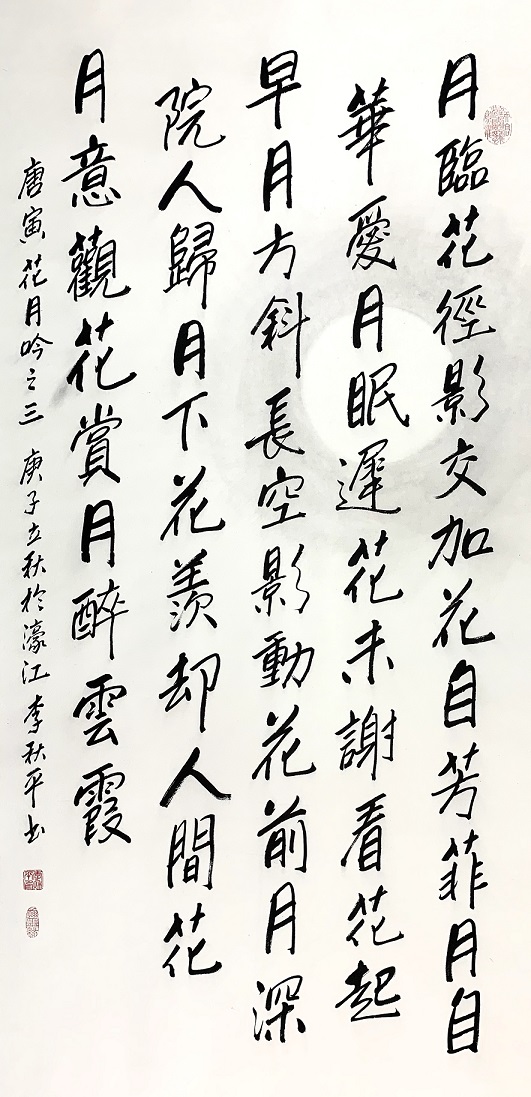 月臨花徑影交加花自芳菲月自
華愛月眠遲花未謝看花起
早月方斜長空影動花前月深
院人歸月下花羨却人間花
月意觀花賞月醉雲霞
唐寅花月吟之三 庚子立秋於濠江李秋平书